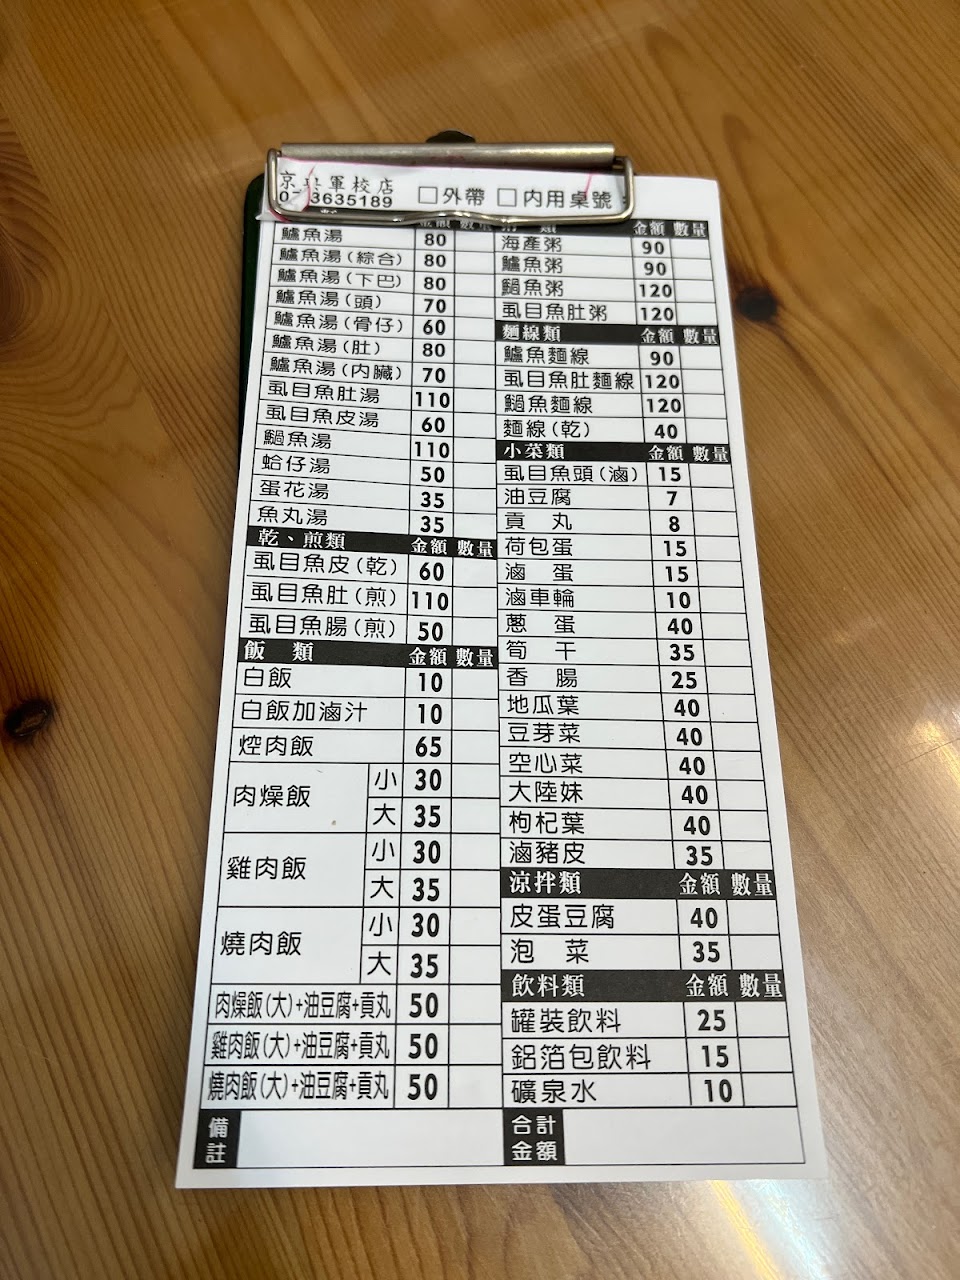 京 軍校店
3635189 □外帶 □內用桌號：
金額 數量
鱸魚湯 80
鱸魚湯(綜合) 80
鱸魚湯(下巴) 80
鱸魚湯(頭) 70
鱸魚湯(骨仔) 60
鱸魚湯(肚) 80
鱸魚湯(內臟) 70
虱目魚肚湯 110
虱目魚皮湯 60
鍋魚湯 110
蛤仔湯 50
蛋花湯 35
魚丸湯 35
乾、煎類 金額 數量
虱目魚皮(乾) 60
虱目魚肚(煎) 110
虱目魚腸(煎) 50
飯 類 金額 數量
白飯 10
白飯加滷汁 10
焢肉飯 65
肉燥飯 小 30
大 35
雞肉飯 小 30
大 35
燒肉飯 小 30
大 35
肉燥飯(大)+油豆腐+貢丸 50
雞肉飯(大)+油豆腐+貢丸 50
燒肉飯(大)+油豆腐+貢丸 50
備註
類 金額 數量
海產粥 90
鱸魚粥 90
魚粥 120
虱目魚肚粥 120
麵線類 金額 數量
鱸魚麵線 90
虱目魚肚麵線 120
魚麵線 120
麵線(乾) 40
小菜類 金額 數量
虱目魚頭(滷) 15
油豆腐 7
貢 丸 8
荷包蛋 15
滷 蛋 15
滷車輪 10
蔥 蛋 40
筍 干 35
香 腸 25
地瓜葉 40
豆芽菜 40
空心菜 40
大陸妹 40
枸杞葉 40
滷豬皮 35
涼拌類 金額 數量
皮蛋豆腐 40
泡 菜 35
飲料類 金額 數量
罐裝飲料 25
鋁箔包飲料 15
礦泉水 10
合計
金額